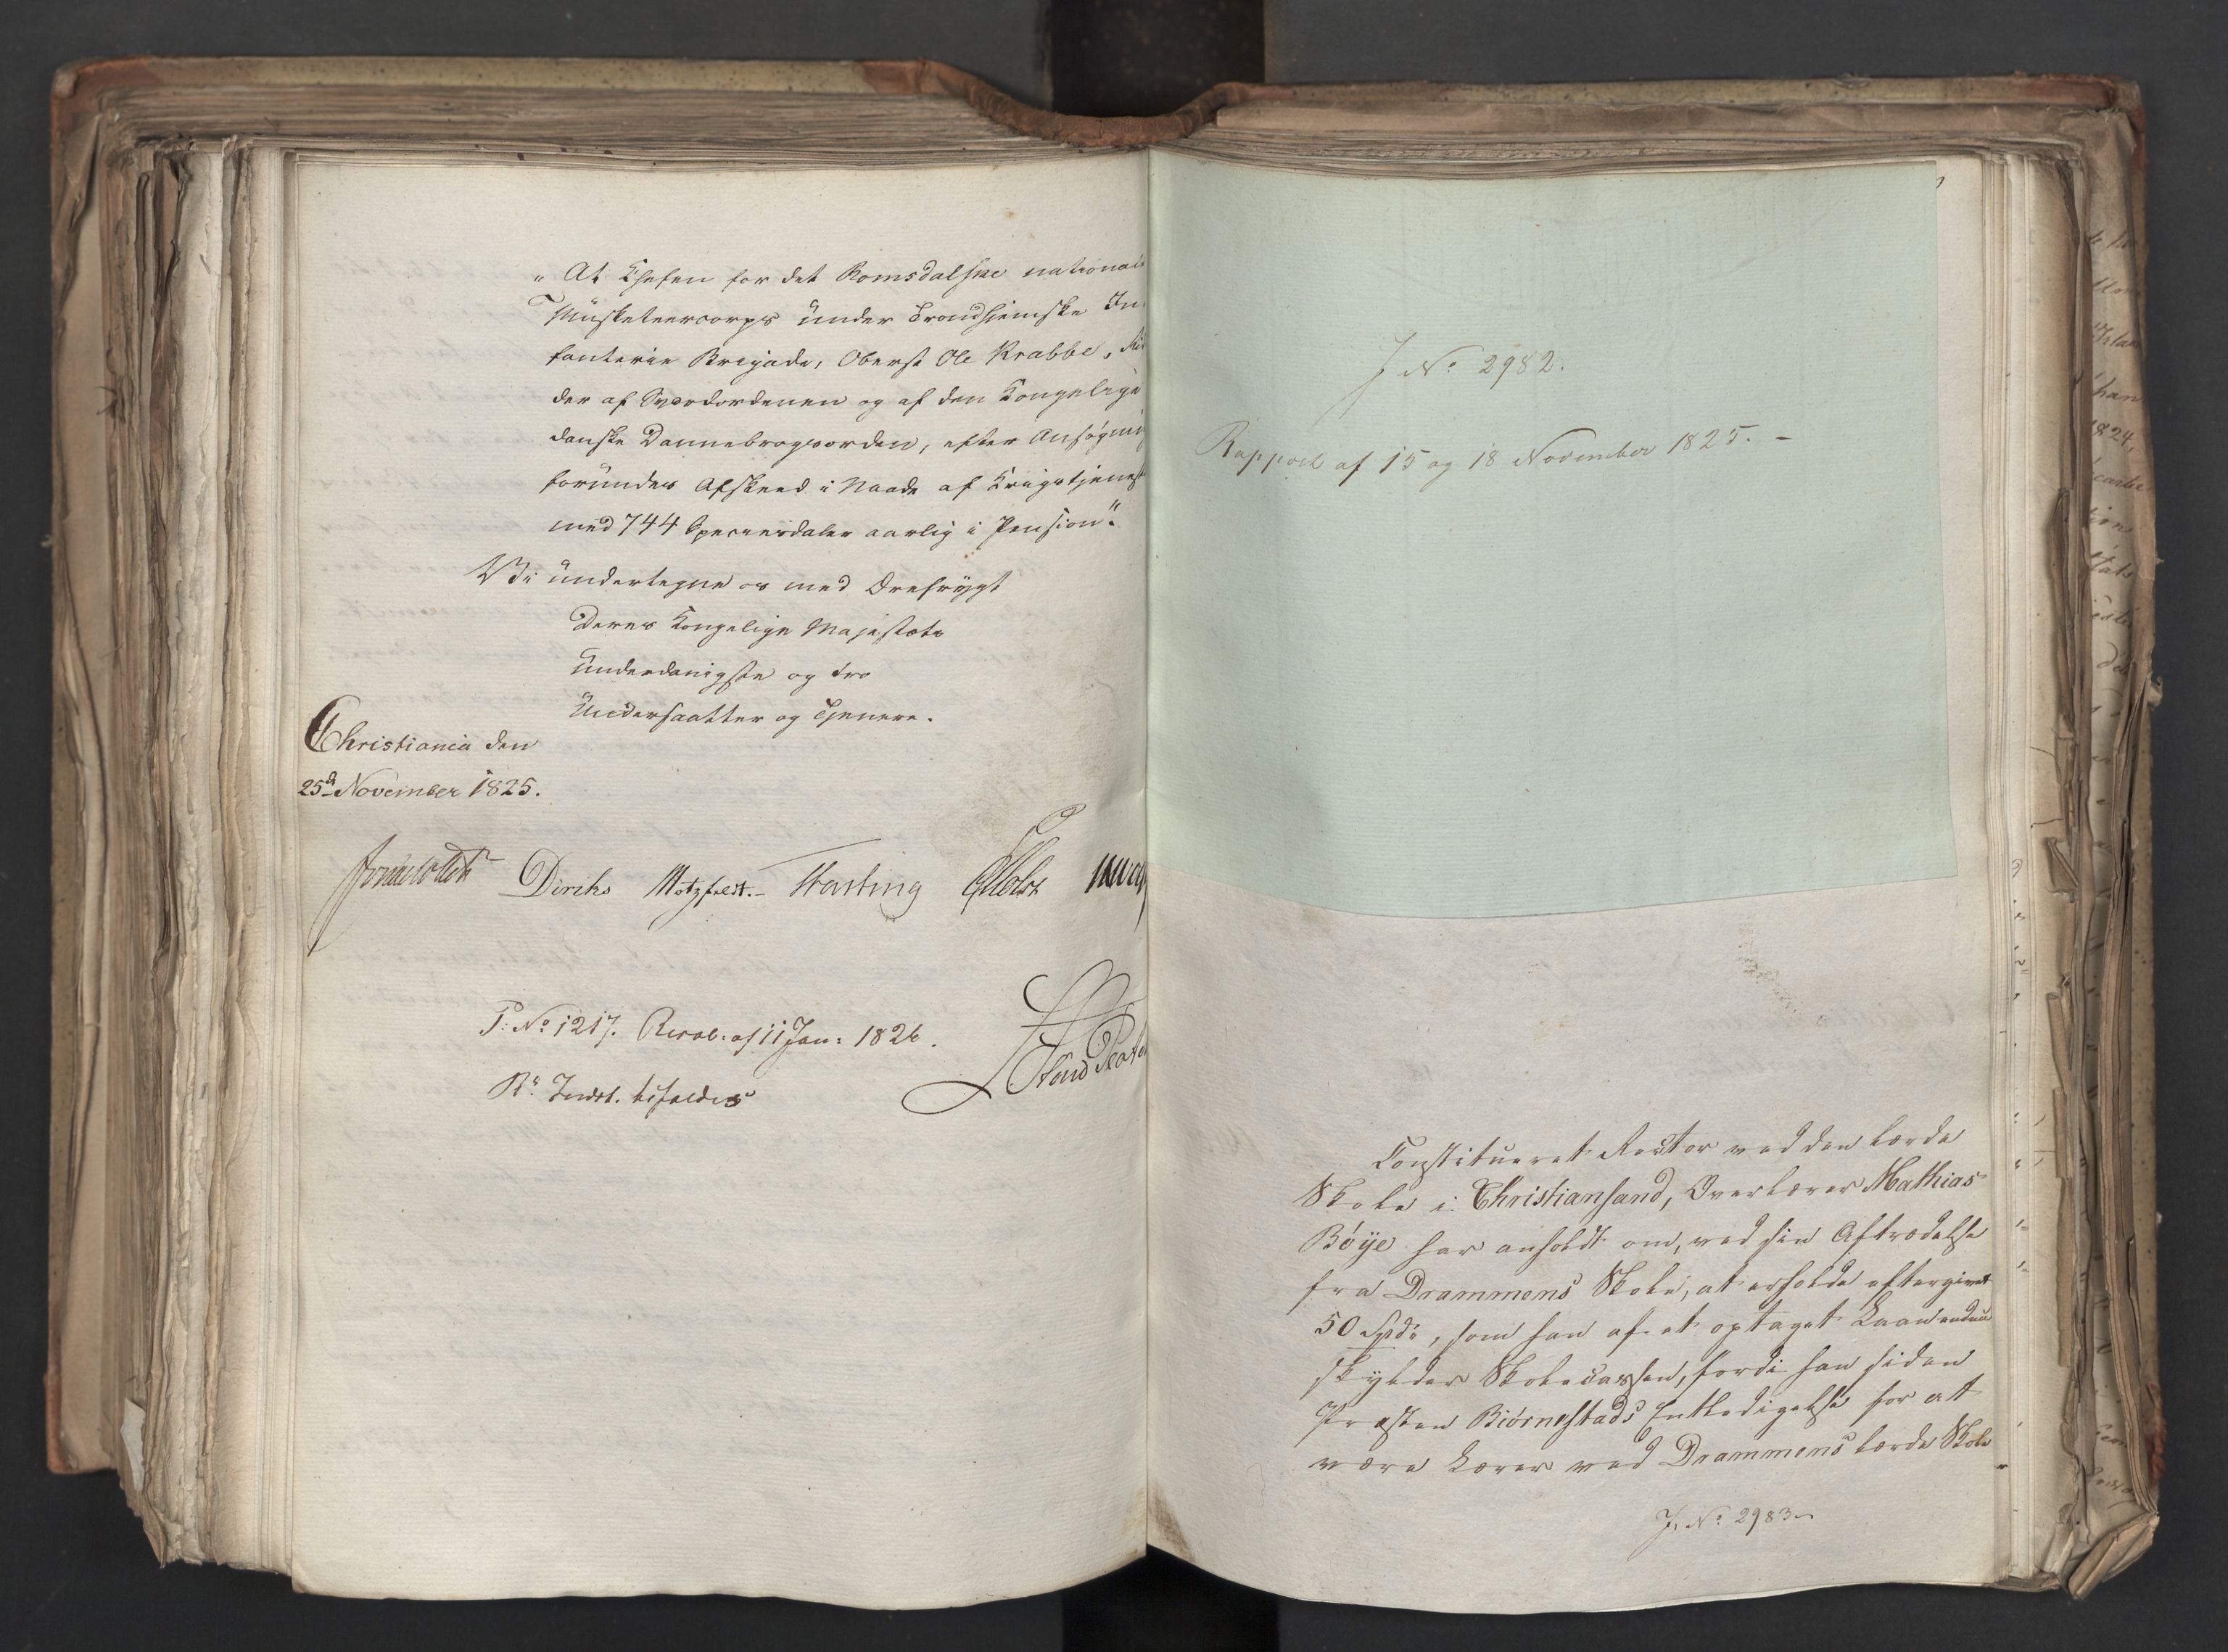 "At Chefen for det Romsdalske nationale
Musketeercorps under Trondhjemske In-
fanterie Brigade, Oberst Ole Krabbe, Rid
der af Sværdordenen og af den Kongelige
danske Dannebrogsorden, efter Ansøgning
forundes Afskeed i Naade af Krigstjenest
med 744 Speciesdaler aarlig i Pension".
Vi undertegne os med Ærefrygt
Deres Kongelige Majestæts
Underdanigste og tro
Undersaatter og Tjenere.
Christiania den
25d November 1825.
Diriks Motzfeldt.- Fasting Holst
P: No 1217. Resol: af 11 Jan: 1826.
Rs Indst. bifaldes
J No 2982.
Rapport af 15 og 18 November 1825. -
Constitueret Rector ved den lærde
Skole i Christiansand, Overlærer Mathias
Böye har anholdt om, ved sin Aftrædelse
fra Drammens Skole, at erholde eftergivet
50 Spd:, som han af et optaget Laan endnu
skylder Skolecassen, fordi han siden
Præsten Biörnestads Entledigelse for at
være Lærer ved Drammens lærde Skole
J. No 2983